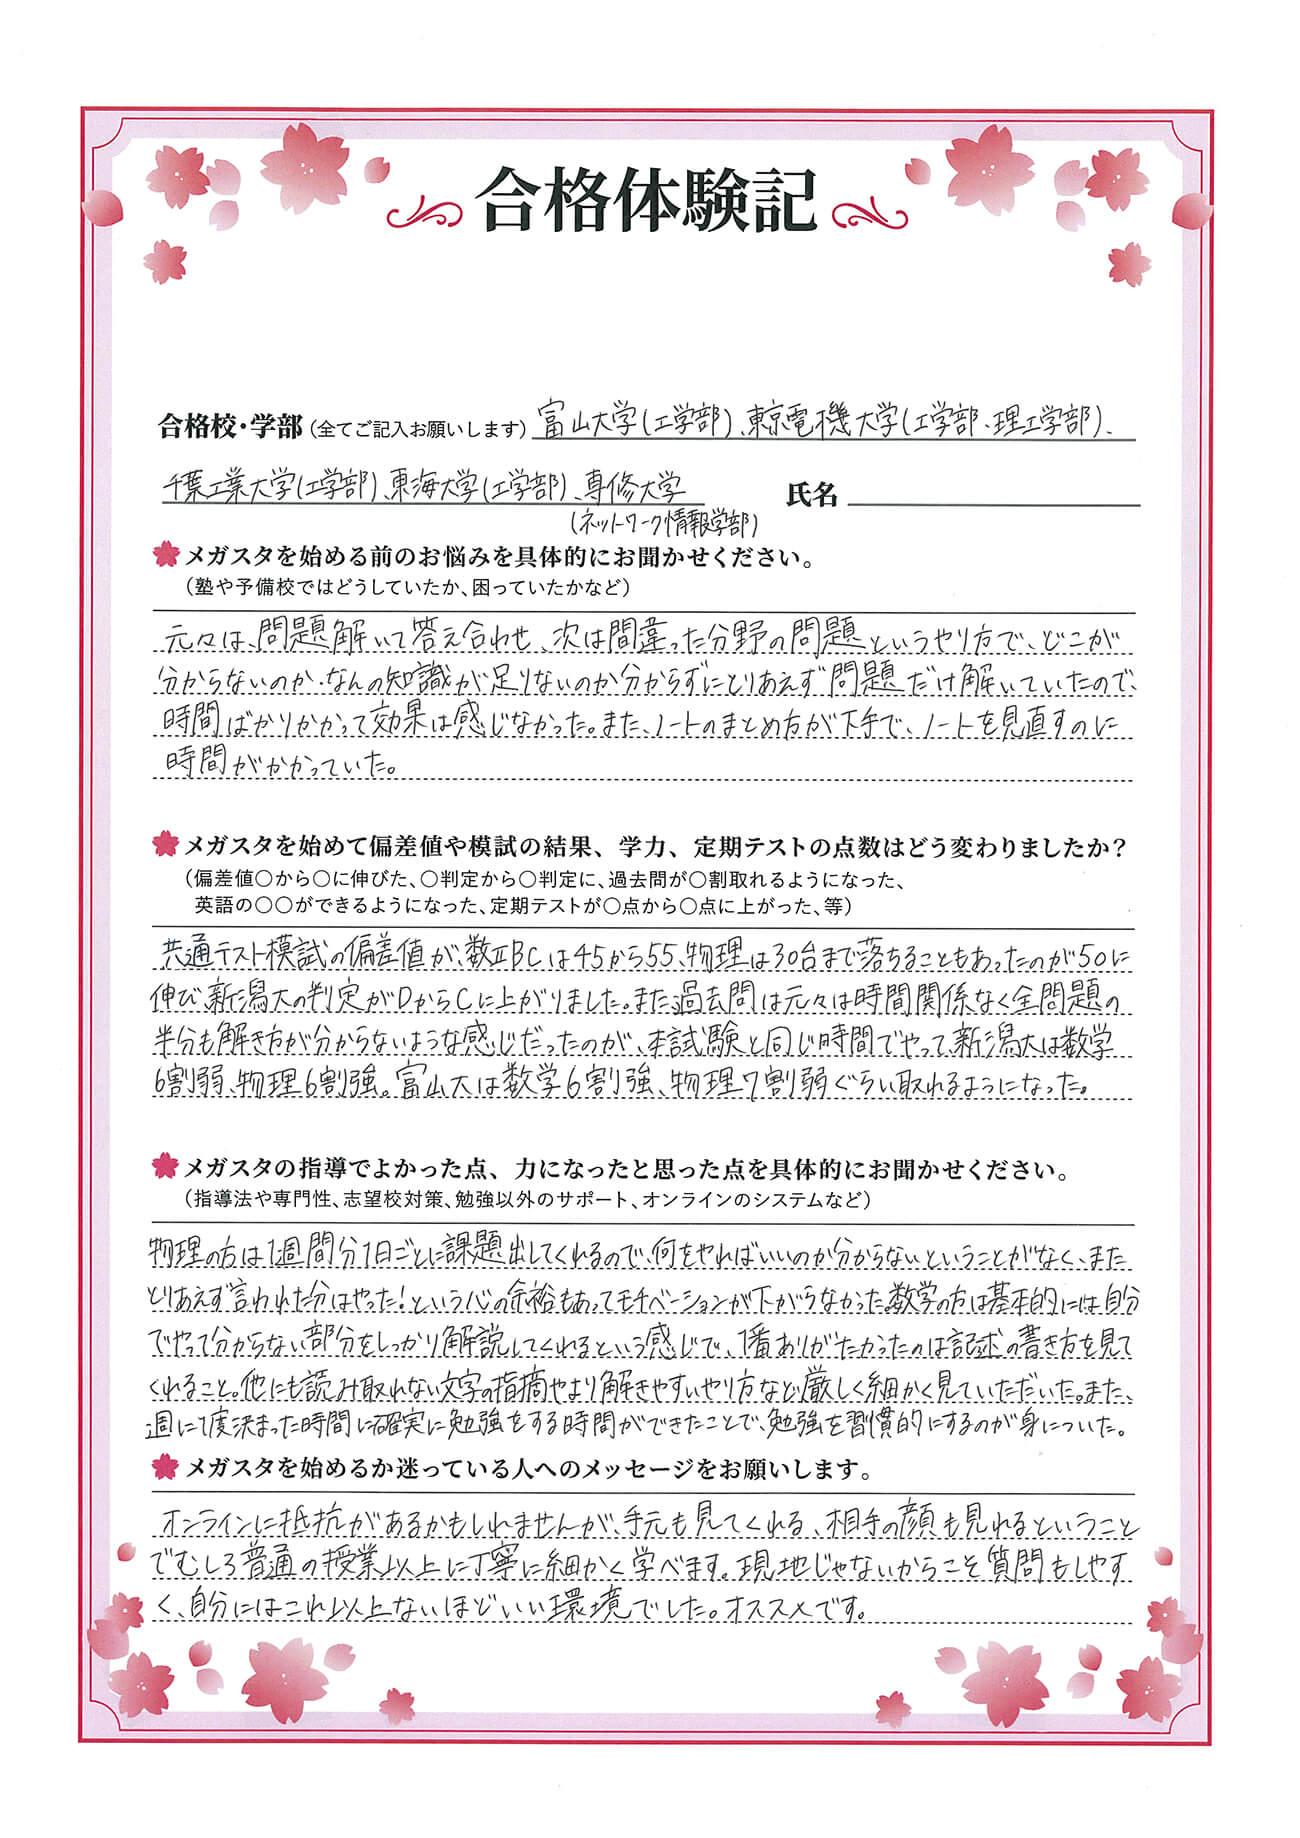 合格体験記
合格校・学部（全てご記入お願いします）富山大学(工学部)、東京電機大学(工学部・理工学部)、
千葉工業大学(工学部)、東海大学(工学部)、専修大学 氏名
(ネットワーク情報学部)
メガスタを始める前のお悩みを具体的にお聞かせください。
（塾や予備校ではどうしていたか、困っていたかなど）
元々は、問題解いて答え合わせ、次は間違った分野の問題というやり方で、どこが
分からないのか、なんの知識が足りないのか分からずにとりあえず問題だけ解いていたので、
時間ばかりかかって効果は感じなかった。また、ノートのまとめ方が下手で、ノートを見直すのに
時間がかかっていた。
メガスタを始めて偏差値や模試の結果、学力、定期テストの点数はどう変わりましたか？
（偏差値〇から〇に伸びた、〇判定から〇判定に、過去問が〇割取れるようになった、
英語の〇〇ができるようになった、定期テストが〇点から〇点に上がった、等）
共通テスト模試の偏差値が、数ⅡBCは45から55、物理は30台まで落ちることもあったのが50に
伸び、新潟大の判定がDからCに上がりました。また過去問は元々は時間関係なく全問題の
半分も解き方が分からないような感じだったのが、本試験と同じ時間でやって、新潟大は数学
6割弱、物理6割強。富山大は数学6割強、物理7割弱ぐらい取れるようになった。
メガスタの指導でよかった点、力になったと思った点を具体的にお聞かせください。
（指導法や専門性、志望校対策、勉強以外のサポート、オンラインのシステムなど）
物理の方は1週間分1日ごとに課題出してくれるので、何をやればいいのか分からないということがなく、また
とりあえず言われた分はやった！という心の余裕もあってモチベーションが下がらなかった。数学の方は基本的には自分
でやって分からない部分をしっかり解説してくれるという感じで、1番ありがたかったのは記述の書き方を見て
くれること。他にも読み取れない文字の指摘やより解きやすいやり方など、厳しく細かく見ていただいた。また、
週に1度決まった時間に確実に勉強をする時間ができたことで、勉強を習慣的にするのが身についた。
メガスタを始めるか迷っている人へのメッセージをお願いします。
オンラインに抵抗があるかもしれませんが、手元も見てくれる、相手の顔も見れるということ
でむしろ普通の授業以上に丁寧に細かく学べます。現地じゃないからこそ質問もしやす
く、自分にはこれ以上ないほどいい環境でした。オススメです。